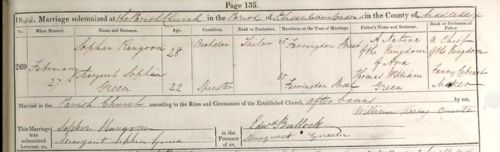 Page 135.
1844. Marriage solemnized at the Parish Church in the Parish of in the County of Middlesex
When Married. Name and Surname. Age. Condition. Rank or Profession. Residence at the Time of Marriage. Father's Name and Surname. Rank or Profession of Father.
269 February 27
Sophar Rangoon 28 Bachelor Tailor 85 Farringdon Street A Native of the Kingdom of Ava A Chief of the Kingdom
Margaret Sophia Green 22 Spinster 85 Farringdon Street Thomas William Green Fancy Maker
Married in the Parish Church according to the Rites and Ceremonies of the Established Church, after Banns by me,
William
This Marriage was solemnized between us, Sophar Rangoon Margaret Sophia Green
in the Presence of us, Edwd Bullock Margaret Green